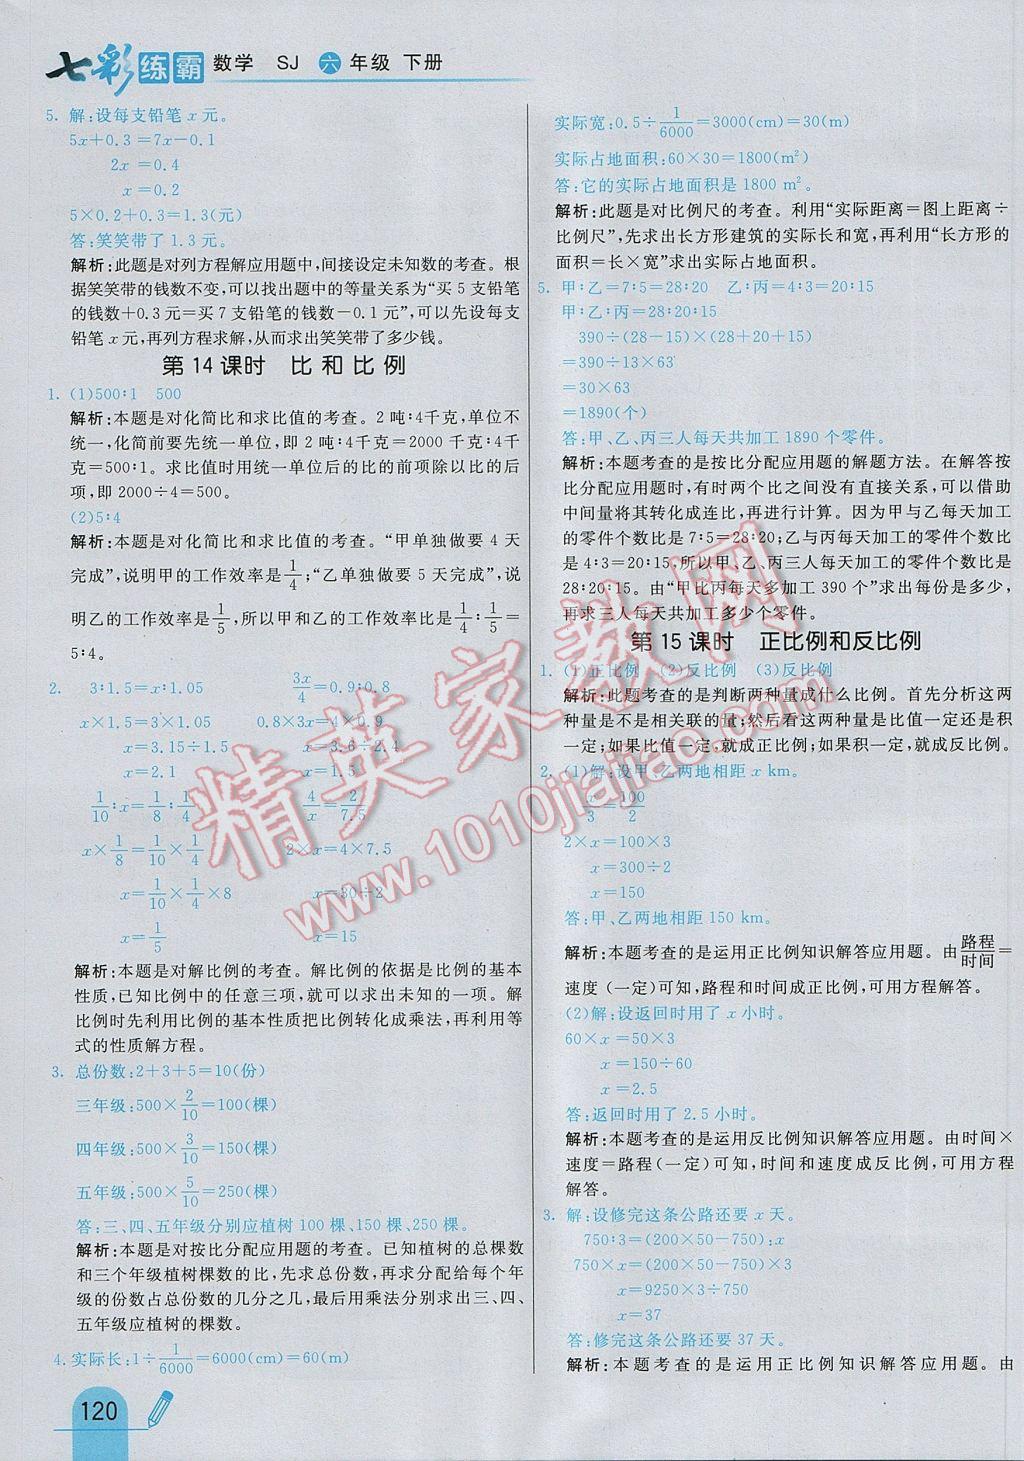 七彩练霸 数学 SJ 六年级 下册
5. 解:设每支铅笔 x 元。
5x+0.3=7x-0.1
2x=0.4
x=0.2
5×0.2+0.3=1.3(元)
答:笑笑带了 1.3 元。
解析:此题是对列方程解应用题中,间接设定未知数的考查。根
据笑笑带的钱数不变,可以找出题中的等量关系为“买 5 支铅笔
的钱数+0.3 元=买 7 支铅笔的钱数-0.1 元”,可以先设每支
铅笔 x 元,再列方程求解,从而求出笑笑带了多少钱。
第 14 课时 比和比例
1. (1)500∶1 500
解析:本题是对化简比和求比值的考查。2 吨∶4千克,单位不
统一,化简前要先统一单位,即 2 吨∶4千克=2000 千克∶4千
克=500∶1。求比值时用统一单位后的比的前项除以比的后
项,即 2000÷4=500。
(2)5∶4
解析:本题是对化简比和求比值的考查。“甲单独做要 4 天
完成”,说明甲的工作效率是1/4;“乙单独做要 5 天完成”,说
明乙的工作效率是1/5,所以甲和乙的工作效率比是1/4∶1/5=
5∶4。
2. 3∶1.5=x∶1.05 3x/4=0.9∶0.8
x×1.5=3×1.05 0.8×3x=4×0.9
x=3.15÷1.5 x=3.6÷2.4
x=2.1 x=1.5
1/10∶x=1/8∶1/4 4/x=2/7.5
x×1/8=1/10×1/4 2×x=4×7.5
x=1/10×1/4×8 x=30÷2
x=1/5 x=15
解析:本题是对解比例的考查。解比例的依据是比例的基本
性质,已知比例中的任意三项,就可以求出未知的一项。解
比例时先利用比例的基本性质把比例转化成乘法,再利用等
式的性质解方程。
3. 总份数:2+3+5=10(份)
三年级:500×2/10=100(棵)
四年级:500×3/10=150(棵)
五年级:500×5/10=250(棵)
答:三、四、五年级分别应植树 100 棵、150 棵、250 棵。
解析:本题是对按比分配应用题的考查。已知植树的总棵数
和三个年级植树棵数的比,先求总份数,再求分配给每个年
级的份数占总份数的几分之几,最后用乘法分别求出三、四、
五年级应植树的棵数。
4. 实际长:1÷1/6000=6000(cm)=60(m)
120
实际宽:0.5÷1/6000=3000(cm)=30(m)
实际占地面积:60×30=1800(m²)
答:它的实际占地面积是 1800 m²。
解析:此题是对比例尺的考查。利用“实际距离=图上距离÷
比例尺”,先求出长方形建筑的实际长和宽,再利用“长方形的
面积=长×宽”求出实际占地面积。
5. 甲∶乙=7∶5=28∶20 乙∶丙=4∶3=20∶15
甲∶乙∶丙=28∶20∶15
390÷(28-15)×(28+20+15)
=390÷13×63
=30×63
=1890(个)
答:甲、乙、丙三人每天共加工 1890 个零件。
解析:本题考查的是按比分配应用题的解题方法。在解答按
比分配应用题时,有时两个比之间没有直接关系,可以借助
中间量将其转化成连比,再进行计算。因为甲与乙每天加工
的零件个数比是 7∶5=28∶20;乙与丙每天加工的零件个数比是
4∶3=20∶15,所以甲、乙、丙三人每天加工的零件个数比是
28∶20∶15。由“甲比丙每天多加工 390 个”求出每份是多少,
再求三人每天共加工多少个零件。
第 15 课时 正比例和反比例
1. (1)正比例 (2)反比例 (3)反比例
解析:此题考查的是判断两种量成什么比例。首先分析这两
种量是不是相关联的量;然后看这两种量是比值一定还是积
一定;如果比值一定,就成正比例;如果积一定,就成反比例。
2. (1)解:设甲、乙两地相距 x km。
x/3=100/2
2×x=100×3
x=300÷2
x=150
答:甲、乙两地相距 150 km。
解析:本题考查的是运用正比例知识解答应用题。由路程/时间=
速度(一定)可知,路程和时间成正比例,可用方程解答。
(2)解:设返回时用了 x 小时。
60×x=50×3
x=150÷60
x=2.5
答:返回时用了 2.5 小时。
解析:本题考查的是运用反比例知识解答应用题。由时间×
速度=路程(一定)可知,时间和速度成反比例,可用方程
解答。
3. 解:设修完这条公路还要 x 天。
750∶3=(200×50-750)∶x
750×x=(200×50-750)×3
x=9250×3÷750
x=37
答:修完这条公路还要 37 天。
解析:本题考查的是运用正比例知识解答应用题。由
精英家教网
www.1010jiajiao.com